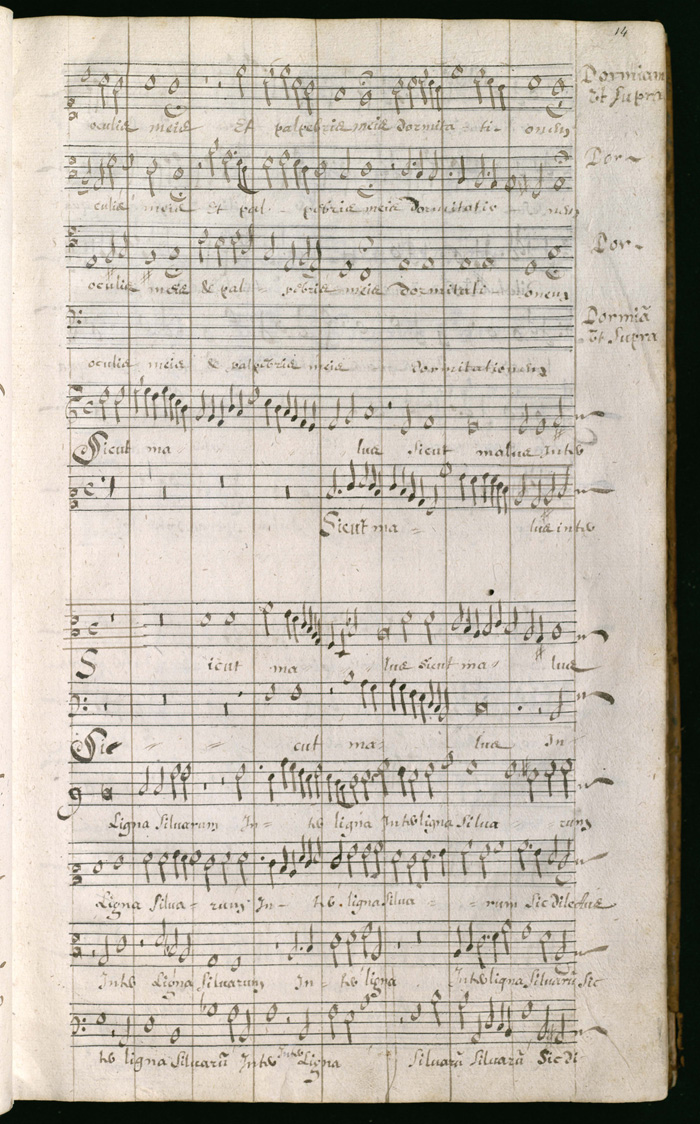 14
Dormiam
Vt Supra
oculis meis Et palpebris meis dormita - ti - onem
Dor~
culis meis et pal - pebris meis Dormitatio - nem
Dor~
oculis meis & pal pebris meis Dormitati - onem
Dormiã
Vt Supra
oculis meis & palpebris meis Dormitationem
Sicut ma lus Sicut malus Inter
Sicut ma = lus inter
S icut ma - lus Sicut ma - lus
Sic - - - cut ma = lus In -
Ligna Siluarum In = ter ligna Inter ligna Silua - - rum
Ligna Silua = rum In - ter ligna Silua - - rum Sic Dilectus
Inter Ligna Siluarum In - ter ligna Inter ligna Siluarũ Sic
ter ligna Siluarũ Inter Inter Ligna Siluarũ Siluarũ Sic Di -